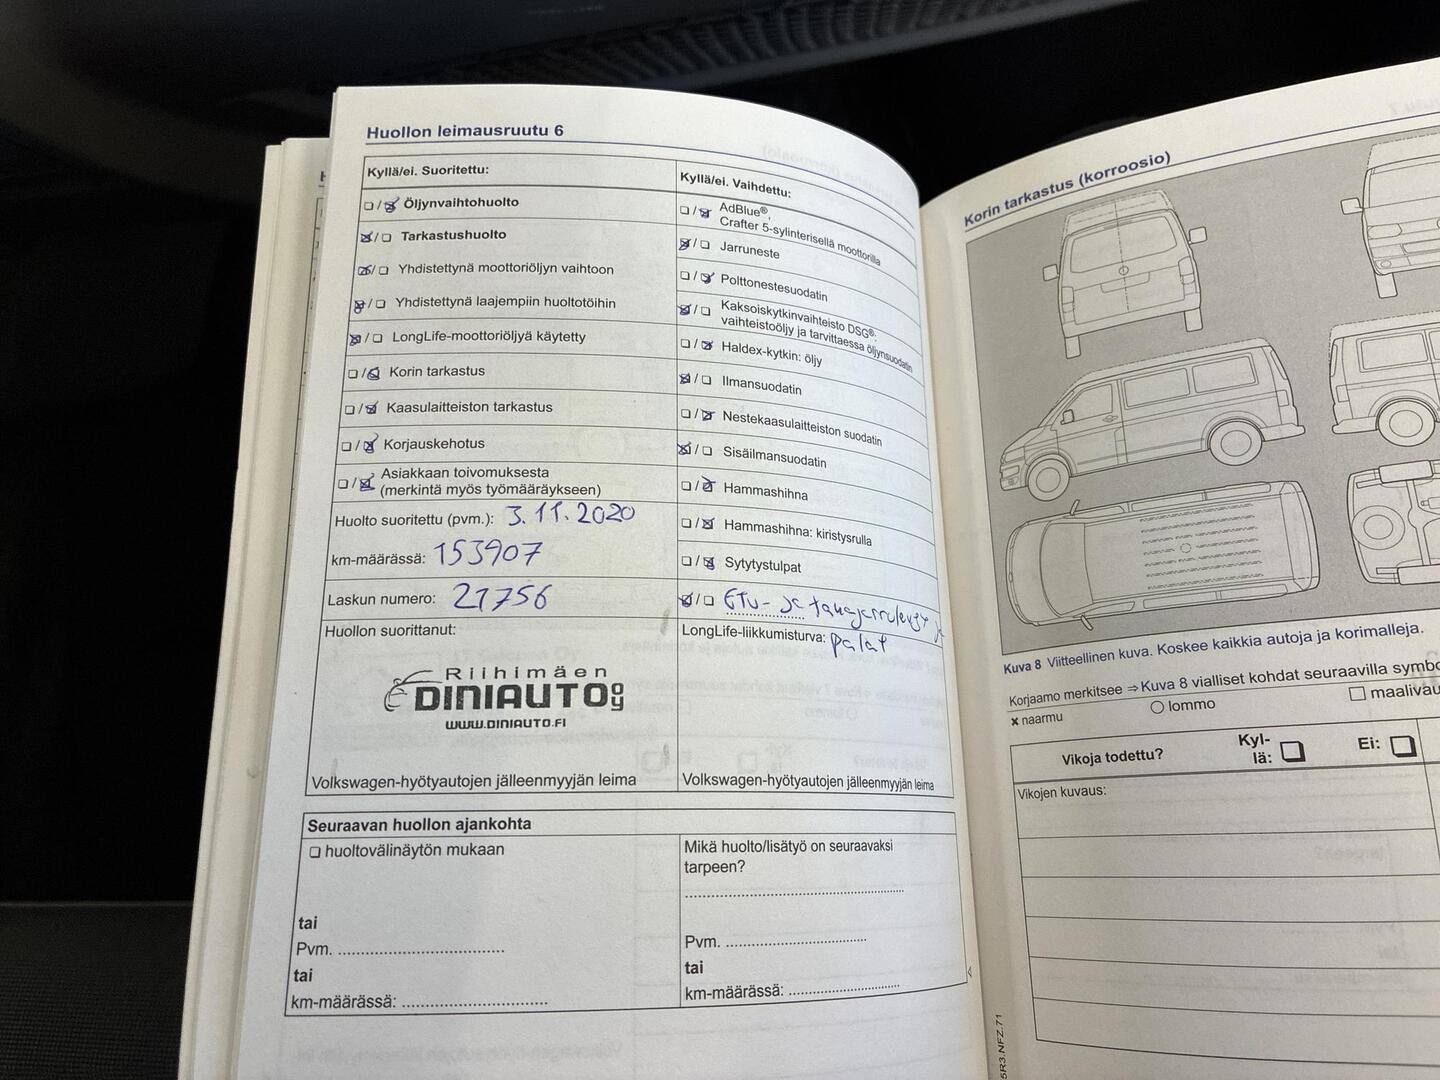 Huollon leimausruutu 6
Kyllä/ei. Suoritettu:
Öljynvaihtohuolto
Tarkastushuolto
Yhdistettynä moottoriöljyn vaihtoon
Yhdistettynä laajempiin huoltotöihin
LongLife-moottoriöljyä käytetty
Korin tarkastus
Kaasulaitteiston tarkastus
Korjauskehotus
Asiakkaan toivomuksesta
(merkintä myös työmääräykseen)
Huolto suoritettu (pvm.): 3.11.2020
km-määrässä: 153907
Laskun numero: 21756
Huollon suorittanut:
Riihimäen
DINIAUTO OY
WWW.DINIAUTO.FI
Volkswagen-hyötyautojen jälleenmyyjän leima
Kyllä/ei. Vaihdettu:
AdBlue®,
Crafter 5-sylinterisellä moottorilla
Jarruneste
Polttonestesuodatin
Kaksoiskytkinvaihteisto DSG®:
vaihteistoöljy ja tarvittaessa öljynsuodatin
Haldex-kytkin: öljy
Ilmansuodatin
Nestekaasulaitteiston suodatin
Sisäilmansuodatin
Hammashihna
Hammashihna: kiristysrulla
Sytytystulpat
Etu- ja takajarrulevyt ja
LongLife-liikkumisturva: palat
Volkswagen-hyötyautojen jälleenmyyjän leima
Seuraavan huollon ajankohta
huoltovälinäytön mukaan
tai
Pvm.
tai
km-määrässä:
Mikä huolto/lisätyö on seuraavaksi
tarpeen?
Pvm.
tai
km-määrässä:
Korin tarkastus (korroosio)
Kuva 8 Viitteellinen kuva. Koskee kaikkia autoja ja korimalleja.
Korjaamo merkitsee ⇒ Kuva 8 vialliset kohdat seuraavilla
x naarmu
lommo
Vikoja todettu?
Kyl-
lä:
Ei:
Vikojen kuvaus:
5R3.NFZ.71